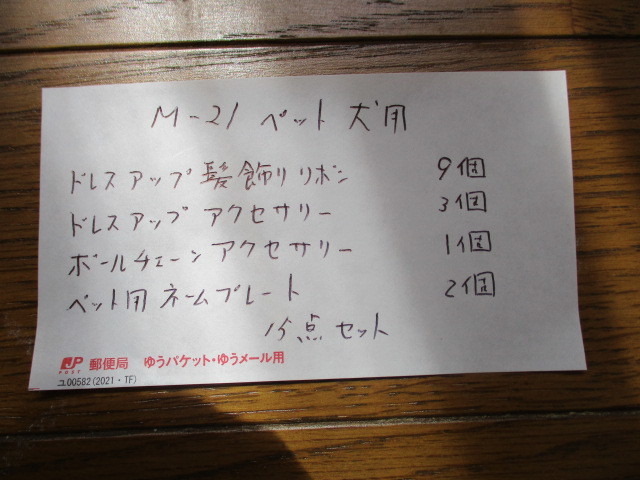 M-21 ペット 犬用
ドレスアップ髪飾りリボン 9個
ドレスアップ アクセサリー 3個
ボールチェーン アクセサリー 1個
ペット用 ネームプレート 2個
15点セット
JP POST 郵便局 ゆうパケット・ゆうメール用
ユ00582(2021・TF)